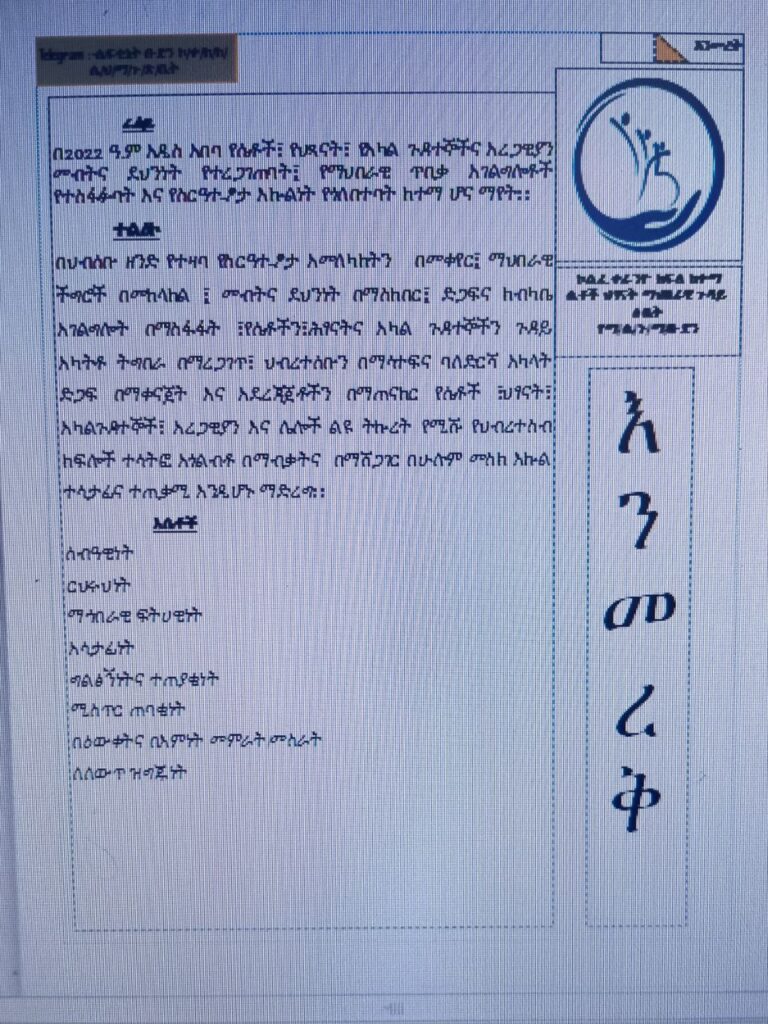 Telegram
እንመረቅ
ራዕይ
በ2022 ዓ.ም አዲስ አበባ የሴቶች፣ የህጻናት፣ የአካል ጉዳተኞችና አረጋዊያን
መብትና ደህንነት የተረጋገጠባት፤ የማህበራዊ ጥበቃ አገልግሎቶች
የተስፋፋባት እና የስርዓተ-ፆታ እኩልነት የጎለበተባት ከተማ ሆና ማየት፡፡
ተልዕኮ
በህብሰቡ ዘንድ የተዛባ የስርዓተ-ፆታ አመለካከትን በመቀየር፤ ማህበራዊ
ችግሮች በመከላከል ፤ መብትና ደህንነት በማስከበር፤ ድጋፍና ክብካቤ
አገልግሎት በማስፋፋት ፣የሴቶችን፣ሕፃናትና አካል ጉዳተኞችን ጉዳይ
አካትቶ ትግበራ በማረጋገጥ፣ ህብረተሰቡን በማሳተፍና ባለድርሻ አካላት
ድጋፍ በማቀናጀት እና አደረጃጀቶችን በማጠናከር የሴቶች ፣ህፃናት፣
አካልጉዳተኞች፣ አረጋዊያን እና ሌሎች ልዩ ትኩረት የሚሹ የህብረተሰብ
ክፍሎች ተሳትፎ አጎልብቶ በማብቃትና በማሸጋገር በሁሉም መስክ እኩል
ተሳታፊና ተጠቃሚ እንዲሆኑ ማድረግ፡፡
እሴቶች
ሰብዓዊነት
ርህሩህነት
ማኅበራዊ ፍትሀዊነት
አሳታፊነት
ግልፅኝነትና ተጠያቂነት
ሚስጥር ጠባቂነት
በዕውቀትና በእምነት መምራት/መስራት
ለለውጥ ዝግጁነት
ኮልፌ ቀራንዮ ክፍለ ከተማ
ሴቶች ህፃናት ማህበራዊ ጉዳይ
ፅ/ቤት
እ
ን
መ
ረ
ቅ